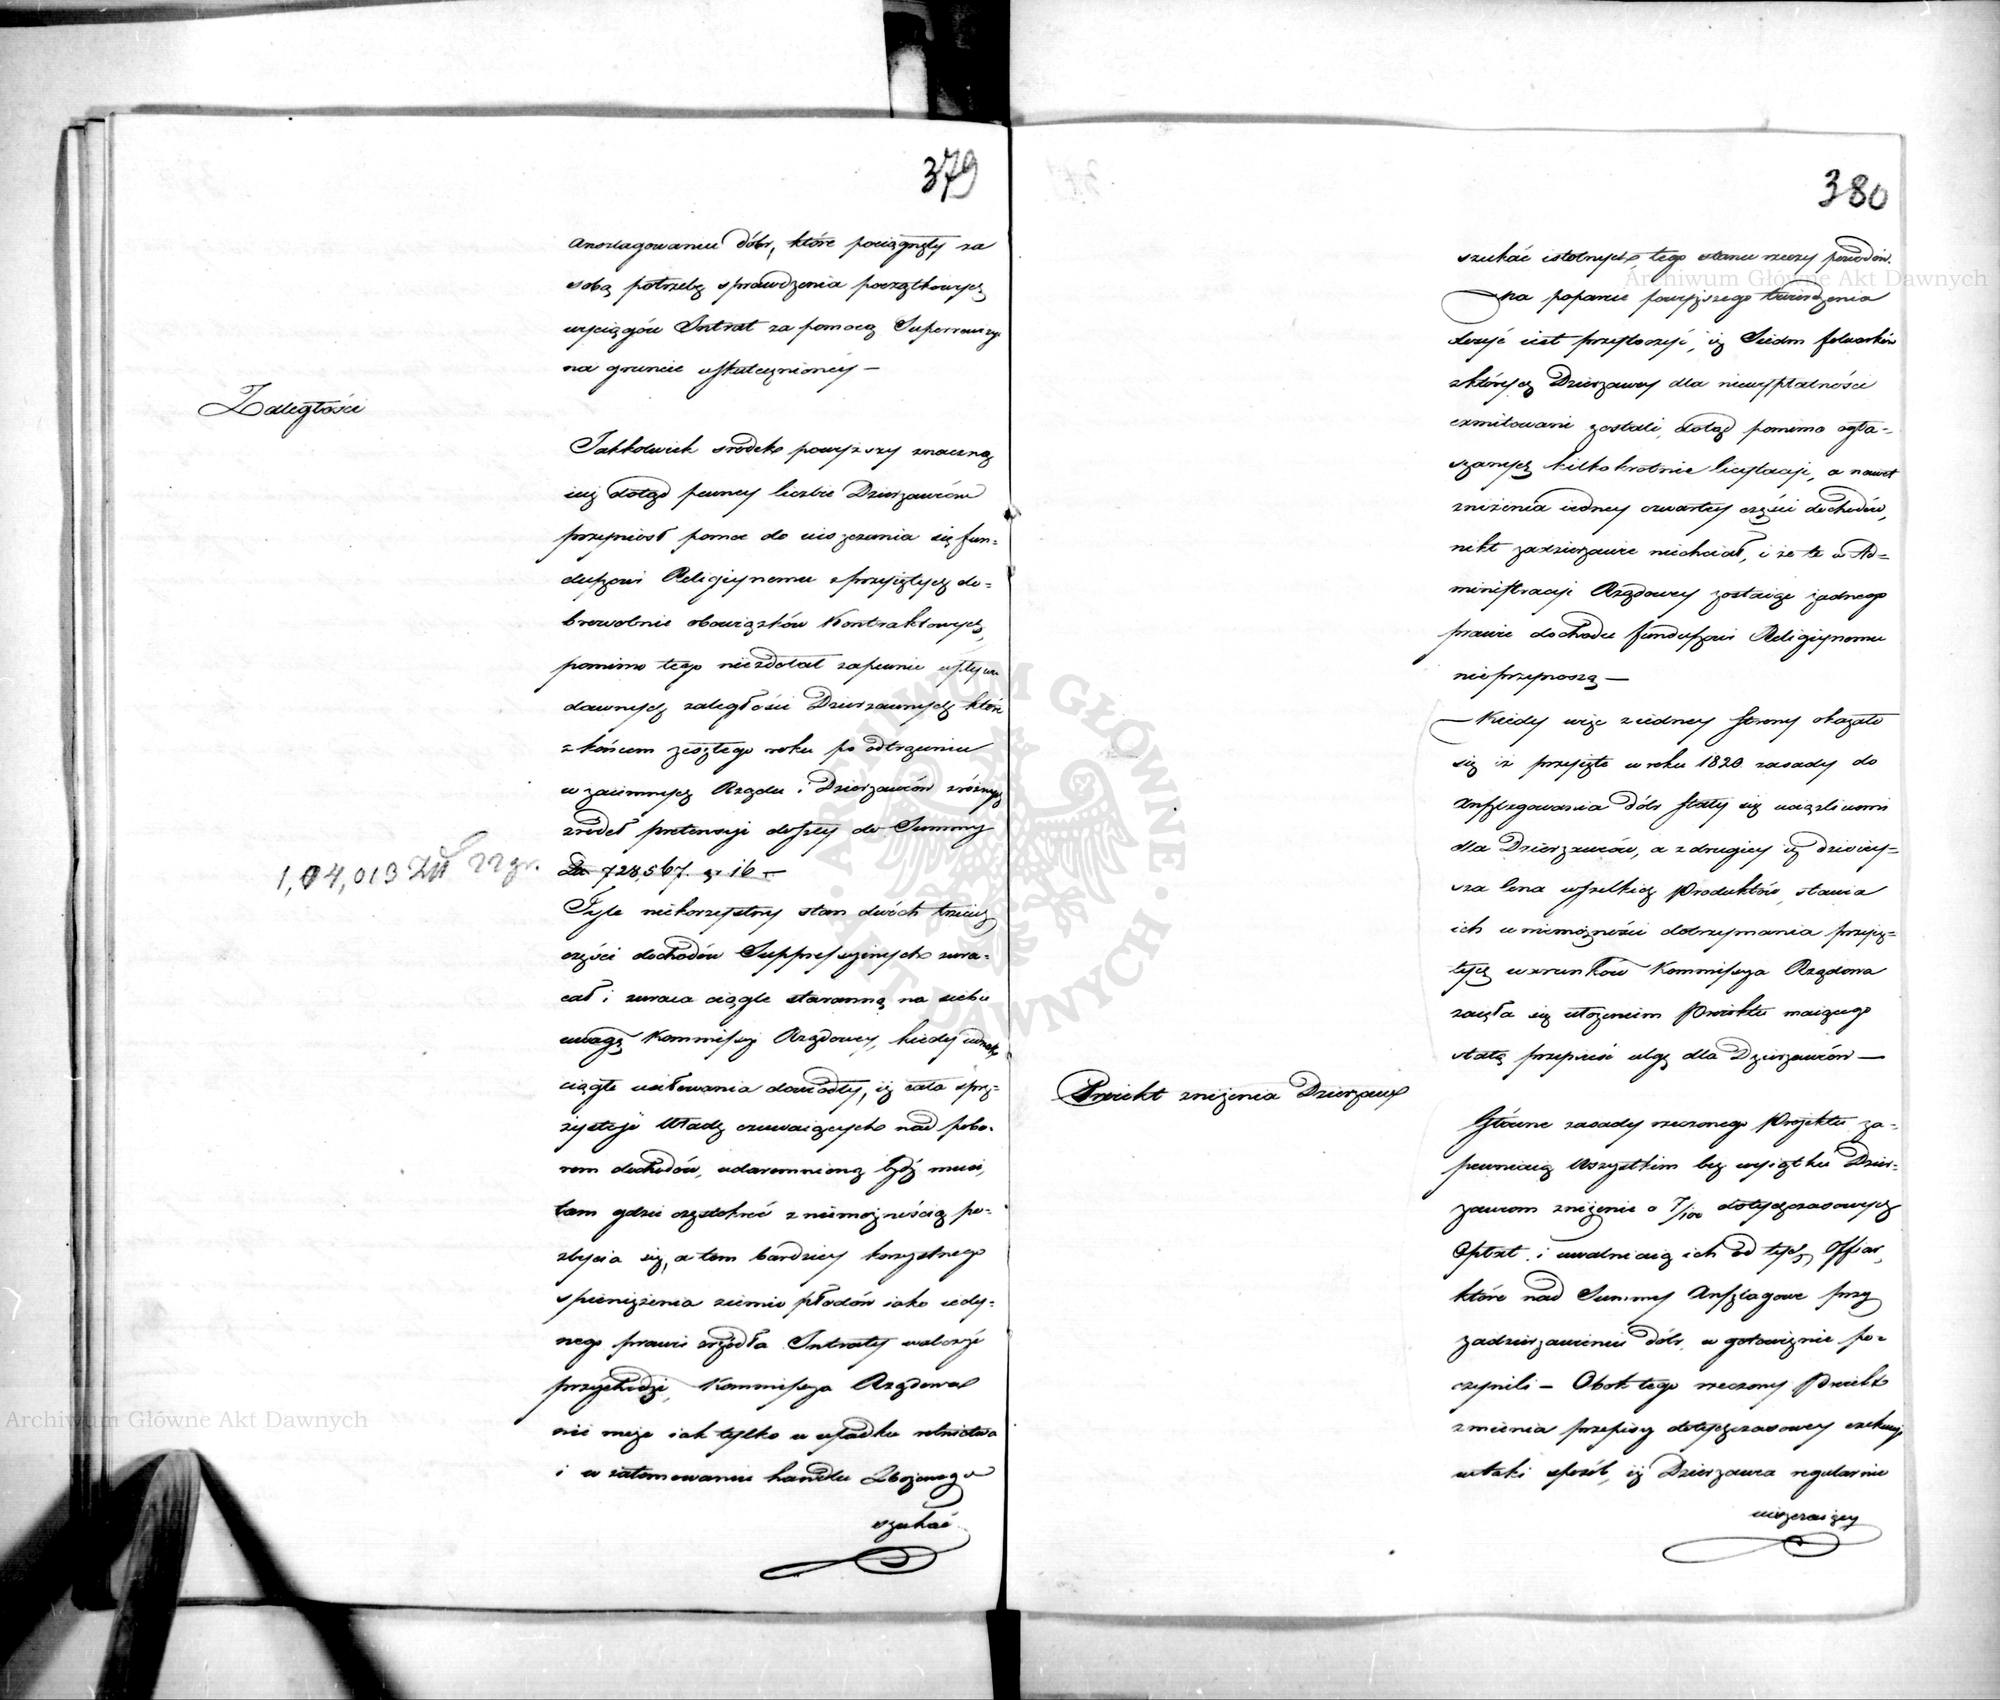 379
anszlagowaniu dóbr, które pociągnęły za
sobą potrzebę sprawdzenia początkowych
wyciągów Intrat za pomocą Superrewizyi
na gruncie uskutecznionéy —
Zaległości
Jakkolwiek srodek powyższy znaczną
iuż dotąd pewney liczbie Dzierzawców
przyniosł pomoc do uiszczania się fun=
duszowi Religiynemu z przyiętych do=
browolnie obowiązków Kontraktowych,
pomimo tego niezdołał zapewnić wpływu
dawnych zaległości Dzierzawnych które
z końcem zeszłego roku po odtrąceniu
wzaiemnych Rządu i Dzierzawców z różnych
źrodeł pretensyi doszły do Summy
1,04,013 Złł 22 gr.
728,567. gr 16 —
Tyle niekorzystny stan dwóch trzecich
części dochodów Suppressyinych zwra=
cał i zwraca ciągle staranną na siebie
uwagę Kommissyi Rządowey, kiedy iednak
ciągłe usiłowania dowiodły, iż cała sprę=
żystość Władz czuwaiących nad pobo=
rem dochodów, udaremnioną bydź musi,
tam gdzie częstokroć z niemożnością po=
zbycia się, a tem bardziey korzystnego
spieniężenia ziemio płodów iako iedy=
nego prawie źrzódła Intraty walczyć
przychodzi, Kommissya Rządowa
nie może iak tylko w upadku rolnictwa
i w zatamowaniu handlu Zbożowego
szukać
380
szukać istotnych tego stanu rzeczy powodów.
Na poparcie powyższego twierdzenia
dosyć iest przytoczyć, iż Siedm folwarków
z których Dzierzawcy dla niewypłatności
exmitowani zostali, dotąd pomimo ogła=
szanych kilkokrotnie licytacyi, a nawet
zniżenia iedney czwartey części dochodów,
nikt zadzierzawić niechciał, i że te w Ad=
ministracyi Rządowey zostaiąc żadnego
prawie dochodu funduszowi Religiynemu
nieprzynoszą —
Kiedy więc z iedney strony okazało
się iż przyięte w roku 1820 zasady do
Anszlagowania dóbr stały się uciążliwemi
dla Dzierzawców, a z drugiey iż dzisiey=
sza Cena wszelkich Produktów, stawia
ich w niemożności dotrzymania przyię=
tych warunków Kommissya Rządowa
zaięła się ułożeniem Proiektu maiącego
stałą przynieść ulgę dla Dzierzawców —
Proiekt zniżenia Dzierzaw
Główne zasady rzeczonego Projektu za=
pewniaią Wszystkim bez wyiątku Dzier=
zawcom zniżenie o 7/100 dotychczasowych
Opłat i uwalniaią ich od tych Offiar,
które nad Summy Anszlagowe przy
zadzierzawieniu dóbr, w gotowiznie po=
czynili — Obok tego rzeczony Proiekt
zmienia przepisy dotychczasowey exekucyi
w taki sposób, iż Dzierzawca regularnie
uiszczaiący
Archiwum Główne Akt Dawnych
Archiwum Główne Akt Dawnych
ARCHIWUM GŁÓWNE AKT DAWNYCH